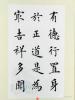 有德行置身
於正道是為
最吉祥多聞